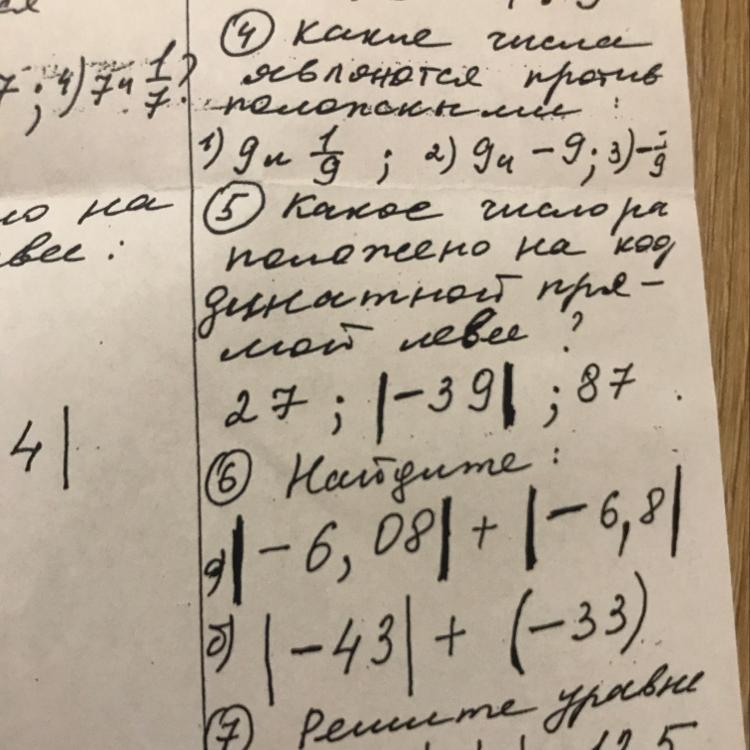 ④ Какие числа
являются против
положными :
1) 9 и 1/9 ; 2) 9 и -9; 3) -
⑤ Какое число ра
положено на коо
динатной пря-
мой левее ?
27 ; |-39| ; 87 .
⑥ Найдите :
а) |-6,08| + |-6,8|
б) |-43| + (-33)
⑦ Решите уравне
7 ; 4) 7 и 1/7 ?
но на
вее :
4|